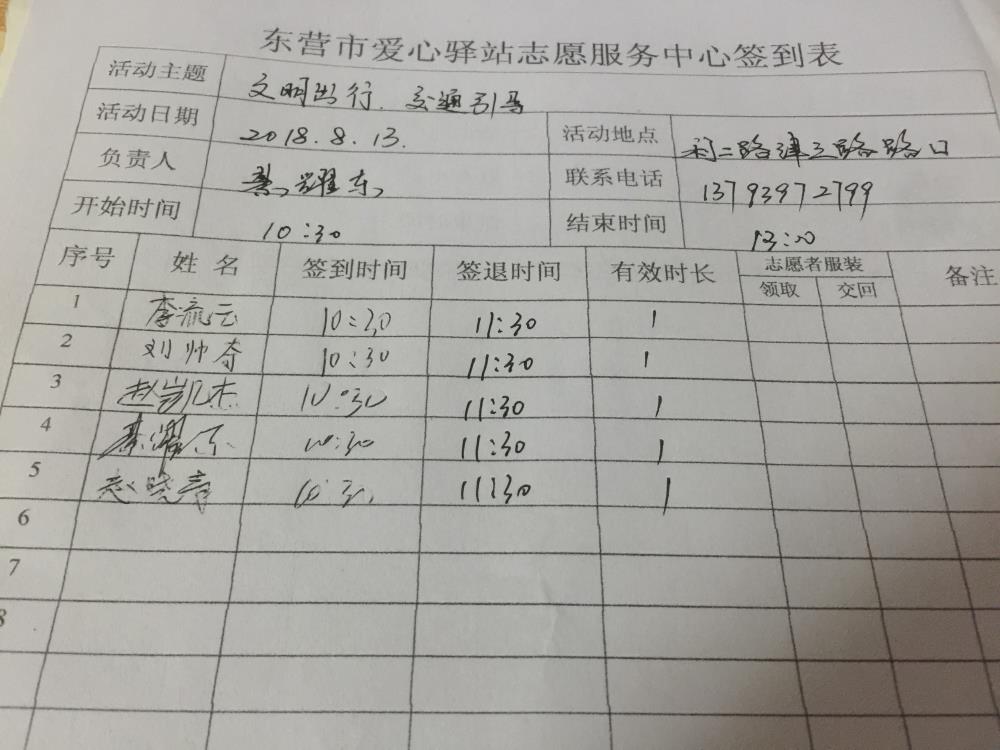 东营市爱心驿站志愿服务中心签到表
活动主题 文明出行、交通引马
活动日期 2018.8.13. 活动地点 利二路津三路路口
负责人 耀东 联系电话 13793972799
开始时间 10:30 结束时间 13:00
序号 姓名 签到时间 签退时间 有效时长 志愿者服装 备注
领取 交回
1 李流云 10:30 11:30 1
2 刘帅奇 10:30 11:30 1
3 赵凯杰 10:30 11:30 1
4 10:30 11:30 1
5 赵晓青 10:30 11:30 1
6
7
8